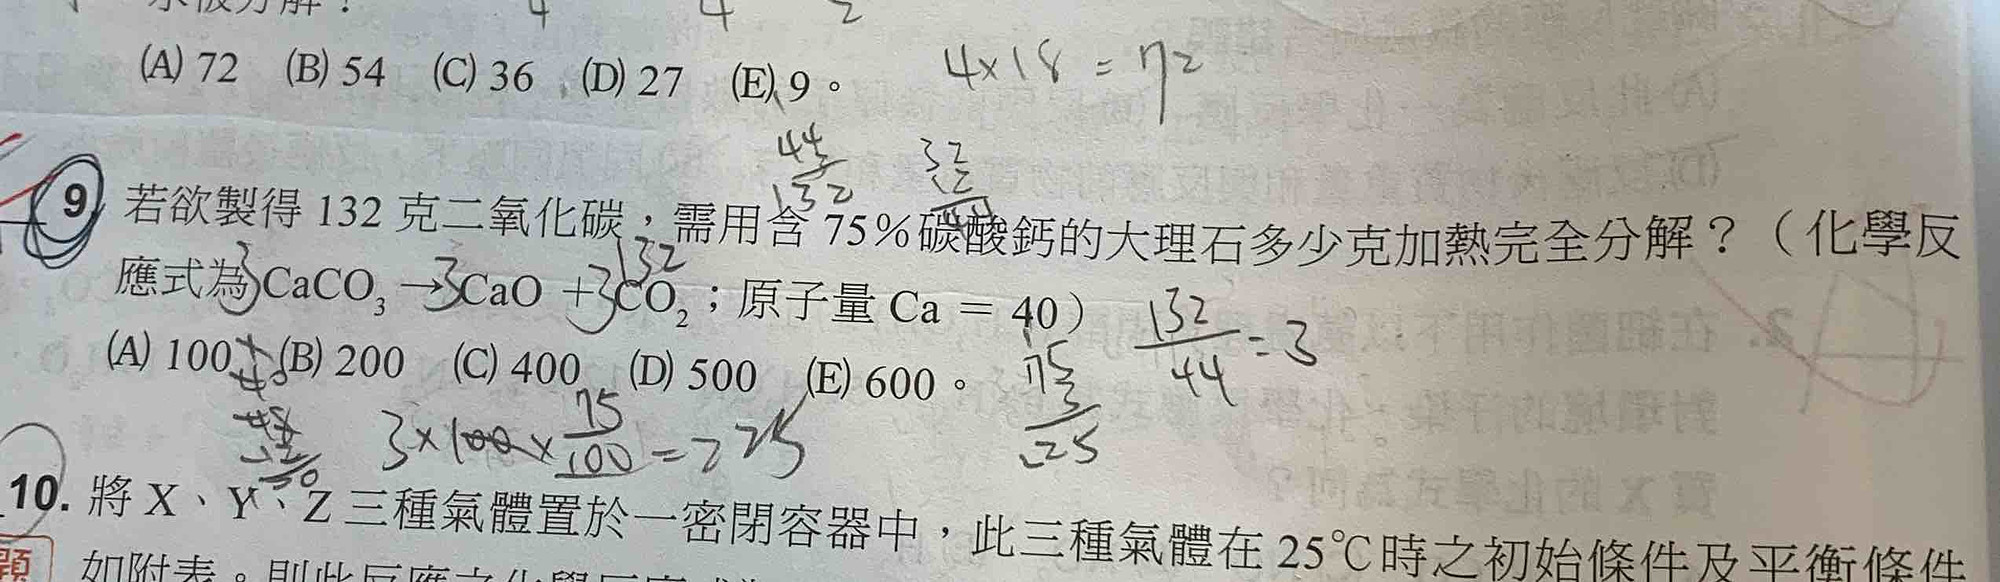 4 4 2
(A) 72 (B) 54 (C) 36 (D) 27 (E) 9。 4×18=72
44 32
132
9 若欲製得 132 克二氧化碳，需用含 75%碳酸鈣的大理石多少克加熱完全分解？（化學反
132
應式為3CaCO₃→3CaO+3CO₂；原子量 Ca = 40） 132/44=3
(A) 100 (B) 200 (C) 400 (D) 500 (E) 600。 75
3
225
3×100×75/100=225
10. 將 X、Y、Z 三種氣體置於一密閉容器中，此三種氣體在 25℃時之初始條件及平衡條件
題 如附表。則此反應之化學反應式